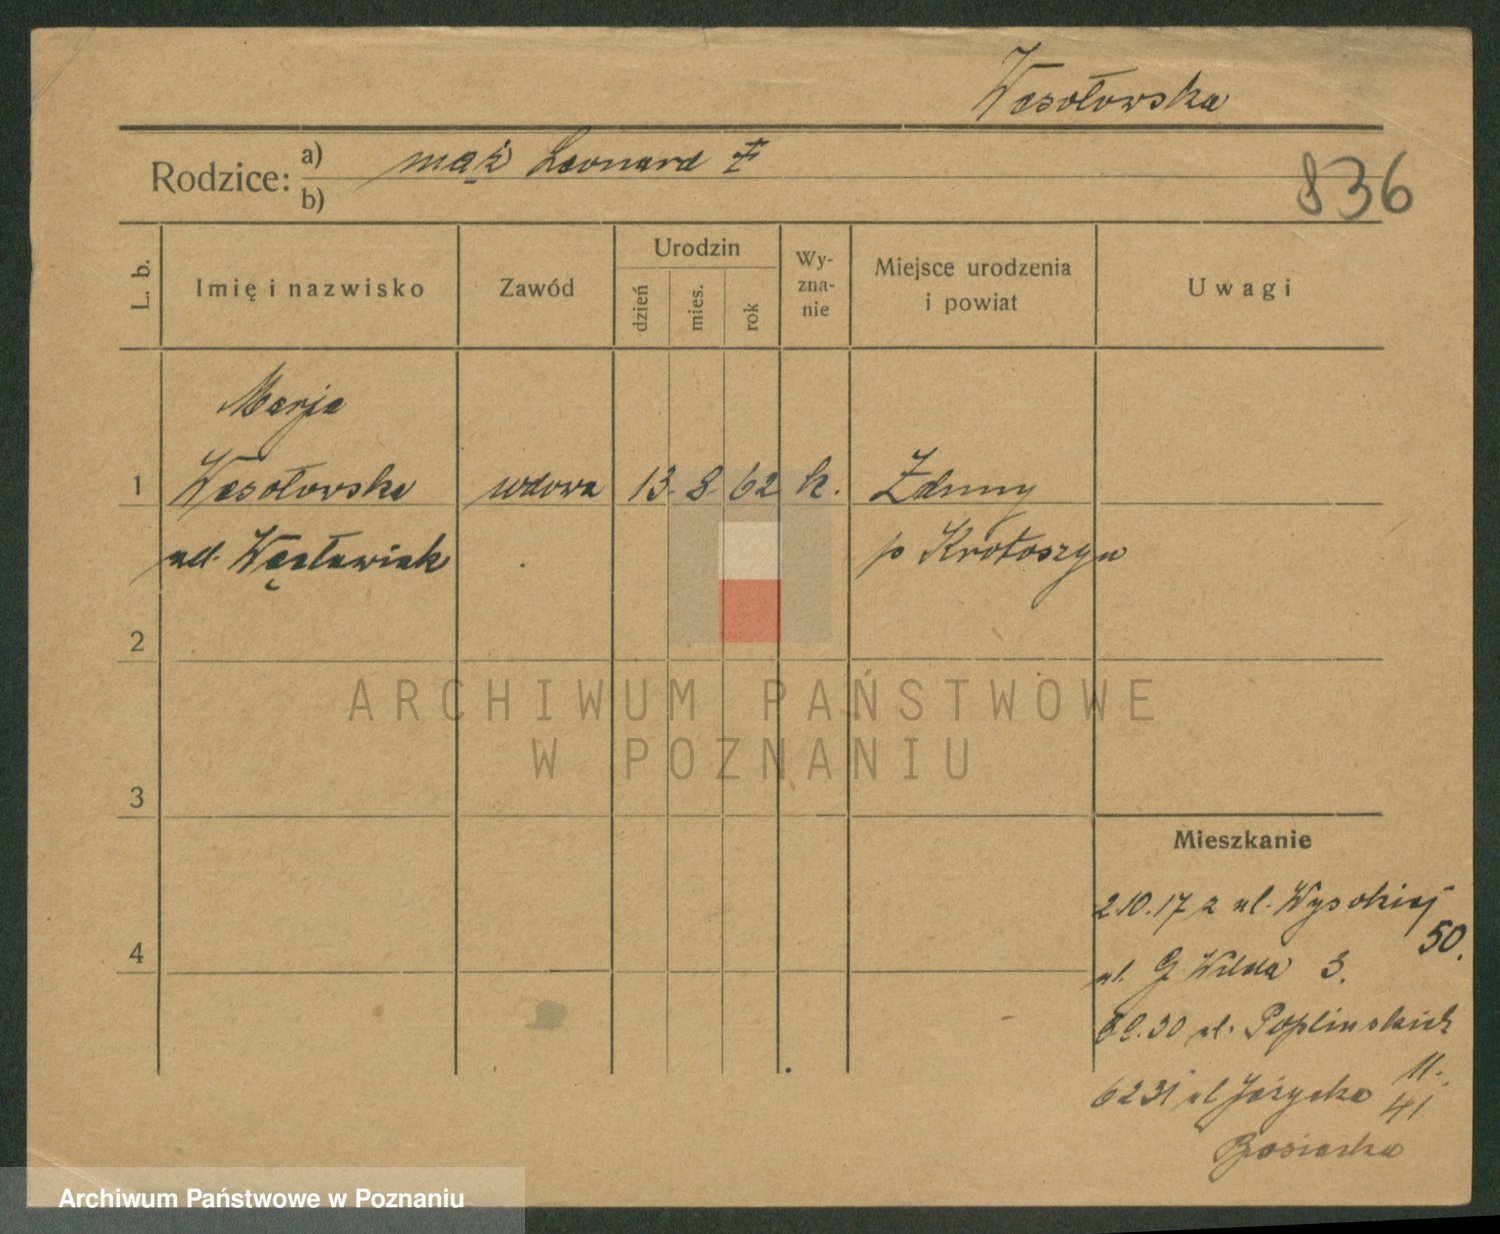 Wesołowska
Rodzice: a) mąż Leonard
b)
836
L. b.
Imię i nazwisko
Zawód
Urodzin
dzień
mies.
rok
Wy-
zna-
nie
Miejsce urodzenia
i powiat
Uwagi
Marja
1 Wesołowska wdowa 13 8 62 k. Zduny
Węcławiak p Krotoszyn
2
3
4
Mieszkanie
2.10.17 z ul. Wysokiej
50.
ul. G. Wilda 3.
30 ul. Poplinskich
11.
6 2 31 ul Jeżycka 41
ARCHIWUM PAŃSTWOWE
W POZNANIU
Archiwum Państwowe w Poznaniu